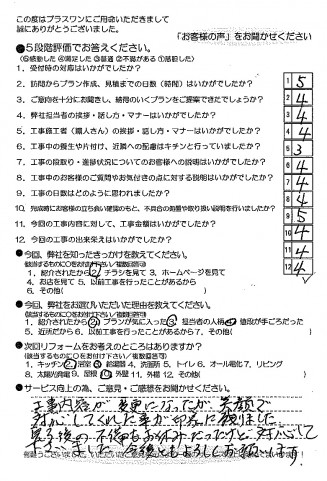 この度はプラスワンにご用命いただきまして
誠にありがとうございました。
「お客様の声」をお聞かせください
●5段階評価でお答えください。
(⑤感動した ④満足した ③普通 ②不満がある ①落胆した)
1. 受付時の対応はいかがでしたか? 1 5
2. 訪問からプラン作成、見積までの日数(時間)はいかがでしたか? 2 4
3. ご意向を十分にお聞きし、納得のいくプランをご提案できたでしょうか? 3 4
4. 弊社担当者の挨拶・話し方・マナーはいかがでしたか? 4 4
5. 工事施工者(職人さん)の挨拶・話し方・マナーはいかがでしたか? 5 3
6. 工事中の養生や片付け、近隣への配慮はキチンと行っていましたか? 6 4
7. 工事の段取り・進捗状況についてのお客様への説明はいかがでしたか? 7 4
8. 工事中のお客様のご質問やお気付きの点に対する説明はいかがでしたか? 8 4
9. 工事の日数はどのように思われましたか? 9 5
10. 完成時にお客様の立ち会い確認のもと、不具合の処置や取り扱い説明を行いましたか? 10 4
11. 今回の工事内容に対して、工事金額はいかがでしたか? 11 4
12. 今回の工事の出来栄えはいかがでしたか? 12 4
●今回、弊社を知ったきっかけを教えてください。
(該当するものに○をお付け下さい/複数回答可)
1. 紹介されたから 2. チラシを見て 3. ホームページを見て
4. お店を見て 5. 以前工事を行ったことがあるから
6. その他( )
●今回、弊社をお選びいただいた理由を教えてください。
(該当するものに○をお付け下さい/複数回答可)
1. 紹介されたから 2. プランが気に入った 3. 担当者の人柄 4. 値段が手ごろだった
5. 近所だから 6. 以前工事を行ったことがあるから 7. その他( )
●次回リフォームをお考えのところはありますか?
(該当するものに○をお付け下さい/複数回答可)
1. キッチン 2. 浴室 3. 給湯器 4. 洗面所 5. トイレ 6. オール電化 7. リビング
8. 太陽光発電 9. 屋根 10. 外壁 11. 外構 12. その他( )
●サービス向上の為、ご意見・ご感想をお聞かせください。
工事内容が変更になったが、笑顔で
対応してくれた事が印象に残りました。
工事後の不備もお休みだったけど対応して
下さいました。今後ともよろしくお願いします。